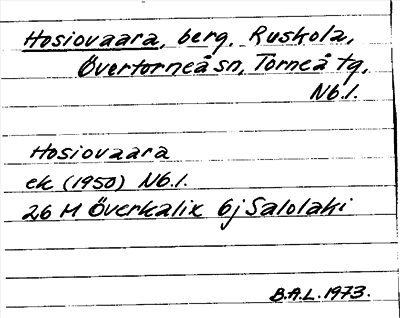 Hosiovaara, berg, Ruskola,
Övertorneå sn, Torneå tg,
Nb.l.
Hosiovaara
ek (1950) Nb.l.
26 M Överkalix 6j Salolaki
B.A.L. 1973.